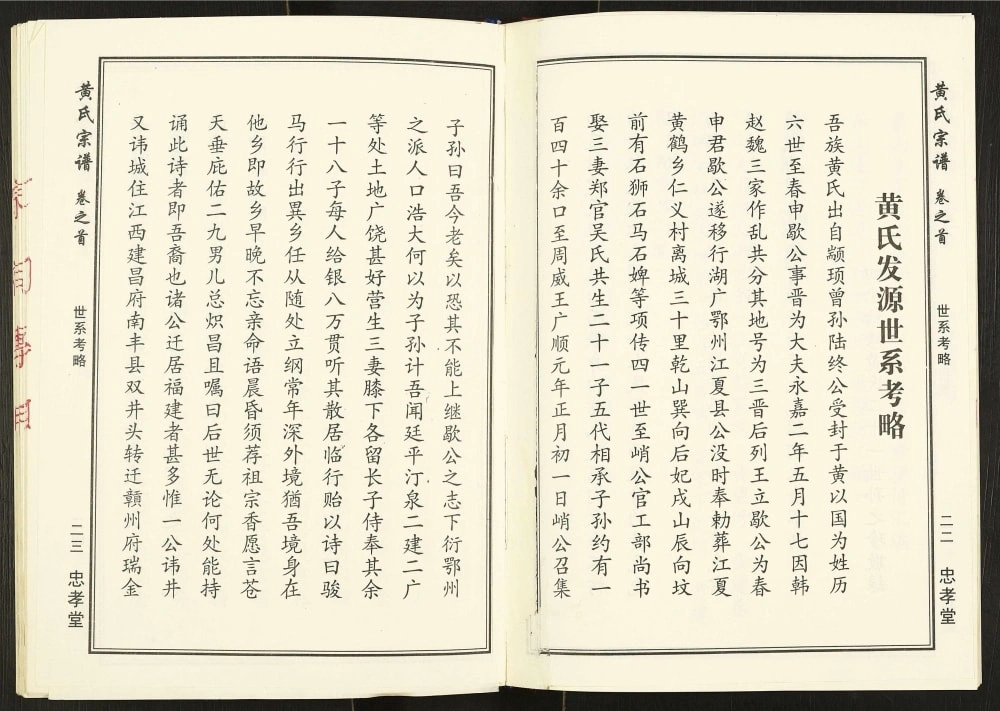 黄氏宗谱 卷之首 世系考略 二二 忠孝堂
黄氏发源世系考略
吾族黄氏出自颛顼曾孙陆终公受封于黄以国为姓历
六世至春申歇公事晋为大夫永嘉二年五月十七因韩
赵魏三家作乱共分其地号为三晋后列王立歇公为春
申君歇公遂移行湖广鄂州江夏县公没时奉勅葬江夏
黄鹤乡仁义村离城三十里乾山巽向后妃戌山辰向坟
前有石狮石马石婢等项传四一世至峭公官工部尚书
娶三妻郑官吴氏共生二十一子五代相承子孙约有一
百四十余口至周威王广顺元年正月初一日峭公召集
子孙曰吾今老矣以恐其不能上继歇公之志下衍鄂州
之派人口浩大何以为子孙计吾闻廷平汀泉二建二广
等处土地广饶甚好营生三妻膝下各留长子侍奉其余
一十八子每人给银八万贯听其散居临行贻以诗曰骏
马行行出異乡任从随处立纲常年深外境猶吾境身在
他乡即故乡早晚不忘亲命语晨昏须荐祖宗香愿言苍
天垂庇佑二九男儿总炽昌且嘱曰后世无论何处能持
诵此诗者即吾裔也诸公迁居福建者甚多惟一公讳井
又讳城住江西建昌府南丰县双井头转迁贛州府瑞金
黄氏宗谱 卷之首 世系考略 二三 忠孝堂